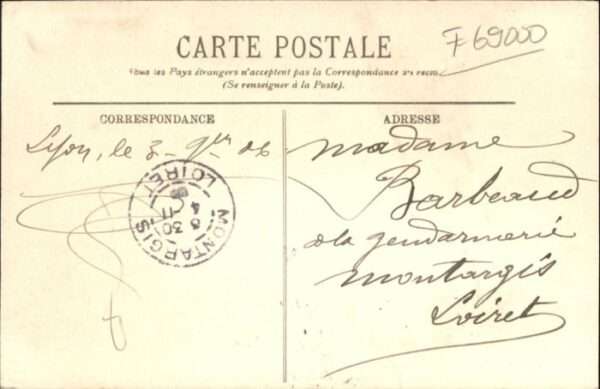 F 69000
CARTE POSTALE
Tous les Pays étrangers n'acceptent pas la Correspondance au recto
(Se renseigner à la Poste).
CORRESPONDANCE
ADRESSE
Lyon, le 3 - 9bre 06
Madame
Barbeaud
à la gendarmerie
Montargis
Loiret
MONTARGIS
LOIRET